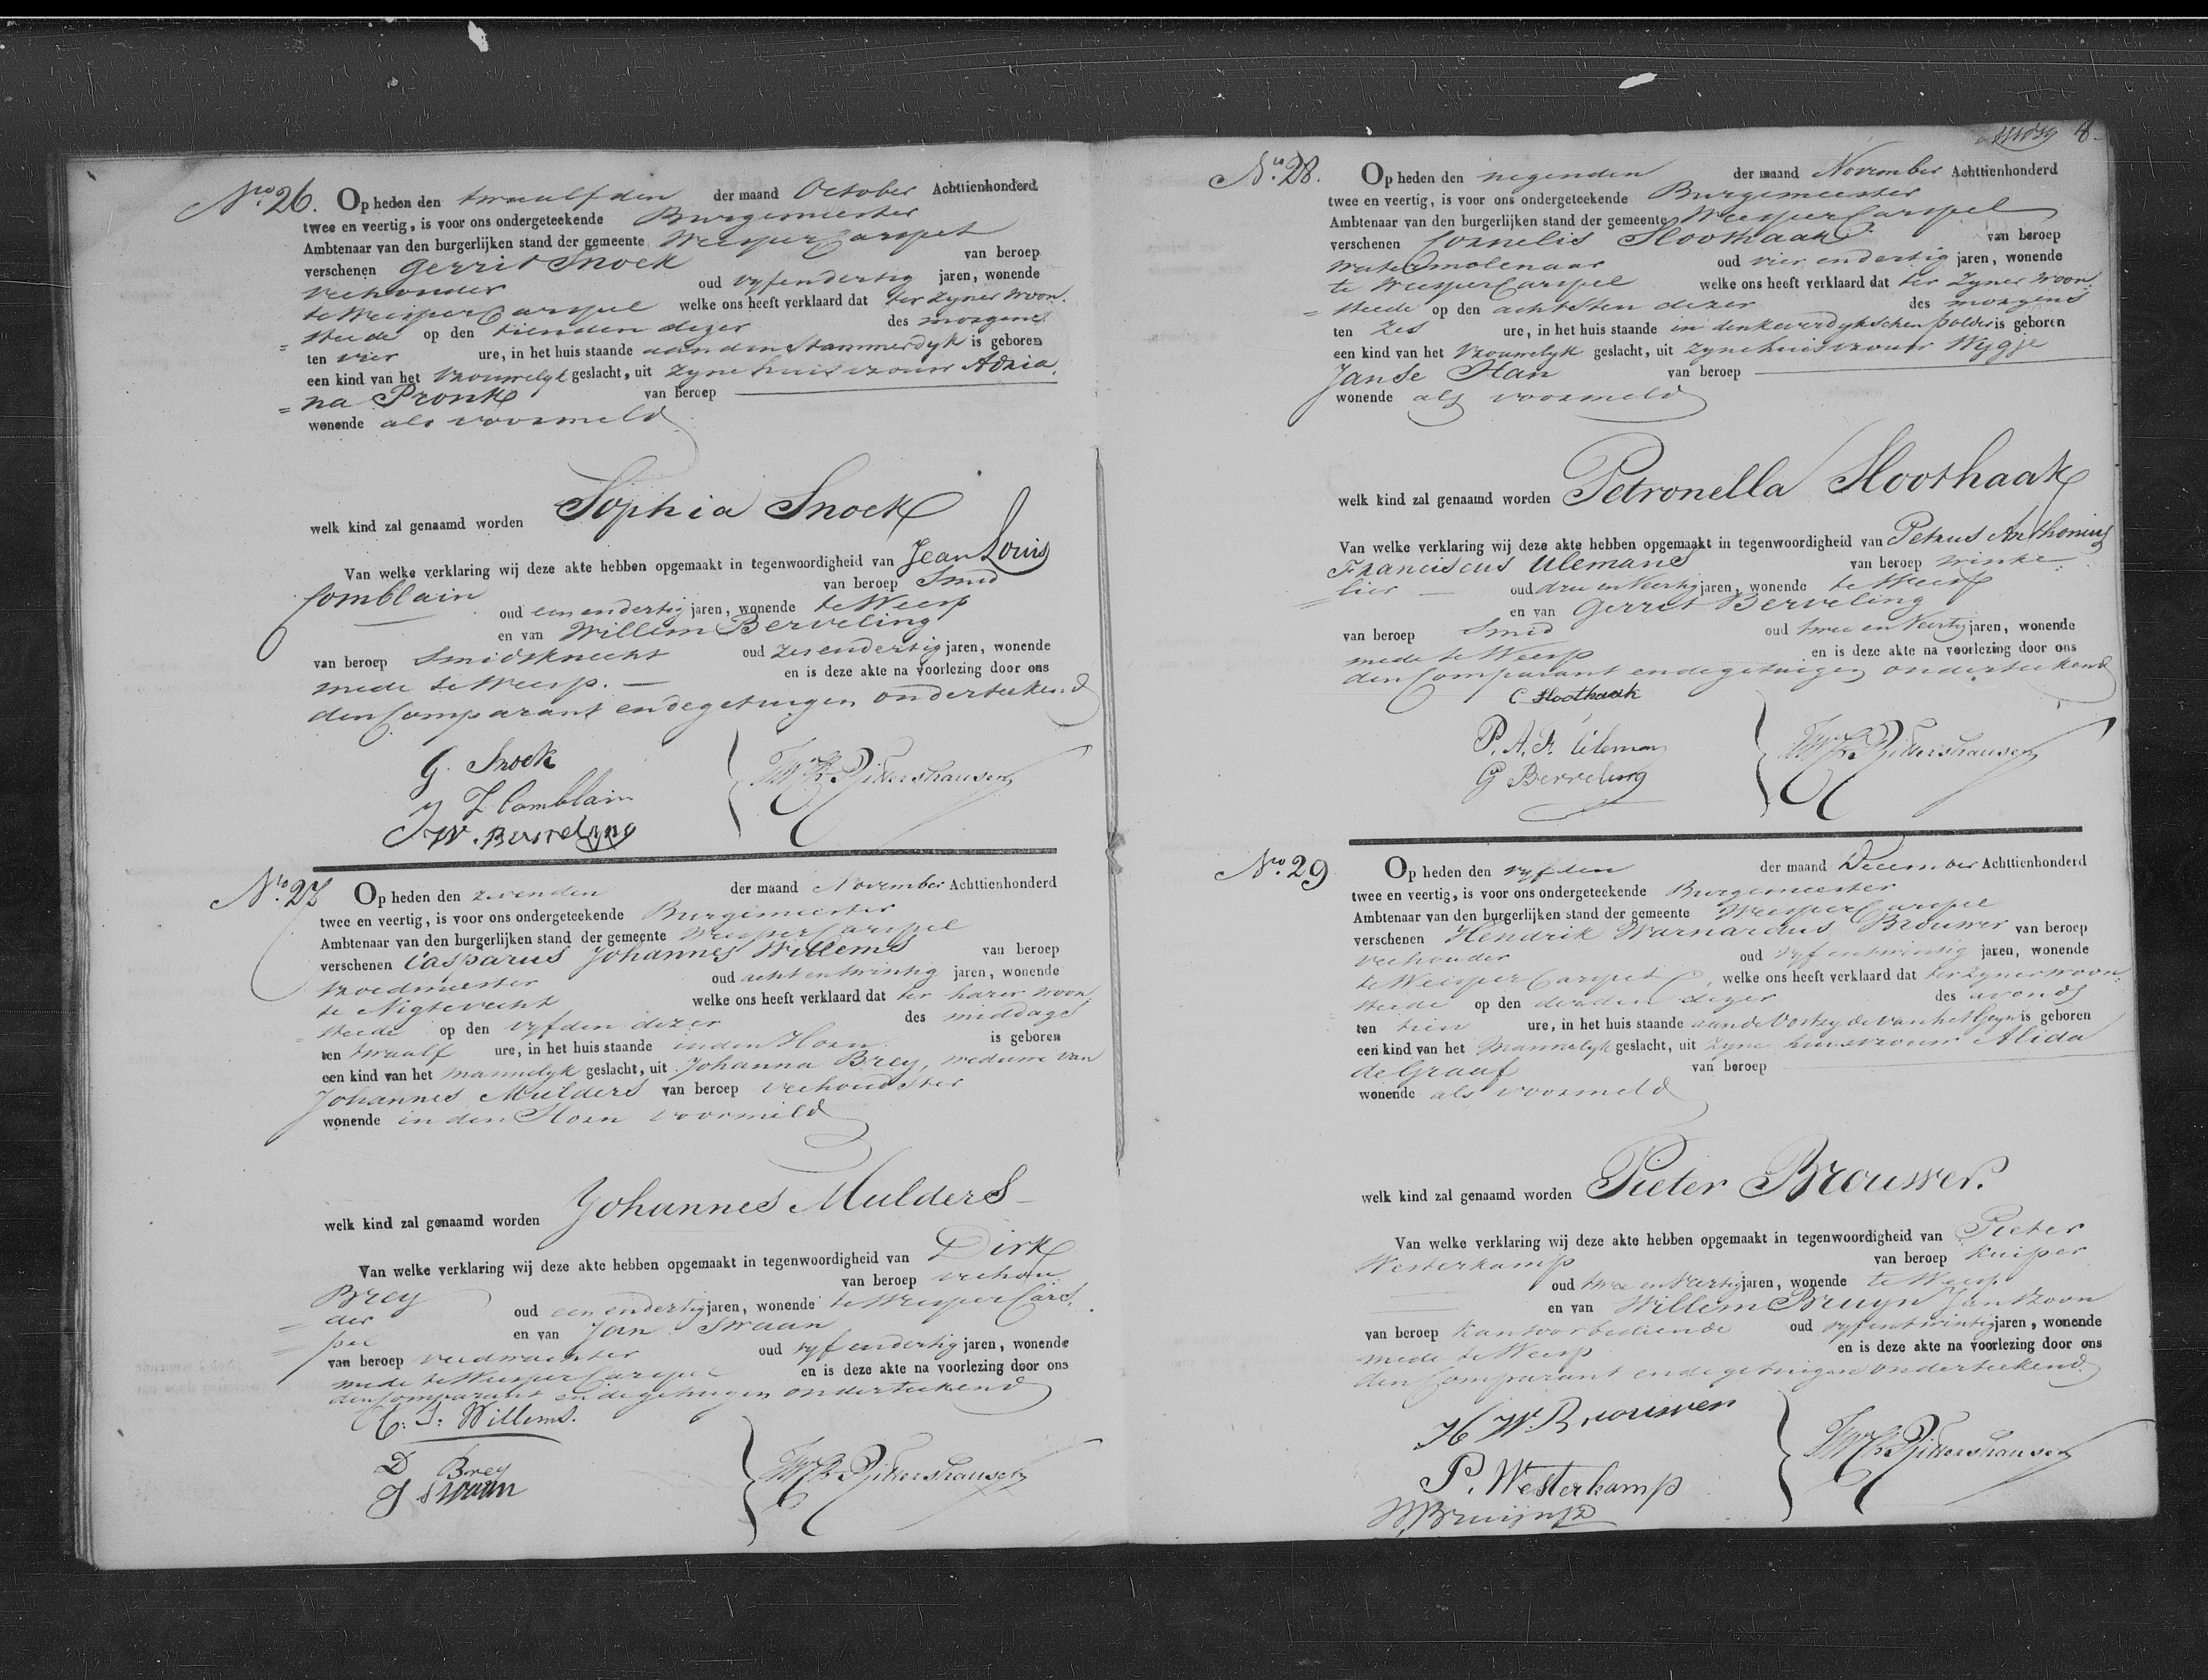 No. 26. Op heden den twaalfden der maand October Achttienhonderd
twee en veertig, is voor ons ondergeteekende Burgemeester
Ambtenaar van den burgerlijken stand der gemeente WeesperCarspel
verschenen Gerrit Snoek van beroep
veehouder oud vyfendertig jaren, wonende
te WeesperCarspel welke ons heeft verklaard dat ter zyner woon
= steede op den tienden dezer des morgens
ten vier ure, in het huis staande aan den Stammerdyk is geboren
een kind van het Vrouwelyk geslacht, uit zyne huisvrouw Adria
= na Pronk van beroep
wonende als voormeld
welk kind zal genaamd worden Sophia Snoek
Van welke verklaring wij deze akte hebben opgemaakt in tegenwoordigheid van Jean Louis
Comblain van beroep Smid
oud een endertig jaren, wonende te Weesp
en van Willem Berveling
van beroep Smidsknecht oud zesendertig jaren, wonende
mede te Weesp. en is deze akte na voorlezing door ons
den Comparant en de getuigen onderteekend
G. Snoek
J L Comblain
W. Berveling
No. 27 Op heden den zevenden der maand November Achttienhonderd
twee en veertig, is voor ons ondergeteekende Burgemeester
Ambtenaar van den burgerlijken stand der gemeente WeesperCarspel
verschenen Casparus Johannes Willems van beroep
vroedmeester oud acht en twintig jaren, wonende
te Nigtevecht welke ons heeft verklaard dat ter harer woon
= steede op den vyfden dezer des middags
ten twaalf ure, in het huis staande in den Horn is geboren
een kind van het mannelyk geslacht, uit Johanna Brey, weduwe van
Johannes Mulders van beroep veehoudster
wonende in den Horn voormeld
welk kind zal genaamd worden Johannes Mulders
Van welke verklaring wij deze akte hebben opgemaakt in tegenwoordigheid van Dirk
Brey van beroep veehou
= der oud een endertig jaren, wonende te WeesperCars
= pel en van Jan Swaan
van beroep veldwachter oud vyf endertig jaren, wonende
mede te WeesperCarspel en is deze akte na voorlezing door ons
den Comparant en de getuigen onderteekend
C. J. Willems.
D Brey
J Swaan
8
No. 28. Op heden den negenden der maand November Achttienhonderd
twee en veertig, is voor ons ondergeteekende Burgemeester
Ambtenaar van den burgerlijken stand der gemeente WeesperCarspel
verschenen Cornelis Sloothaak van beroep
watermolenaar oud vier endertig jaren, wonende
te WeesperCarspel welke ons heeft verklaard dat ter zyner woon
= steede op den achtsten dezer des morgens
ten zes ure, in het huis staande in den keverdykschen polder is geboren
een kind van het Vrouwelyk geslacht, uit zyne huisvrouw Wygje
Janse Han van beroep
wonende als voormeld
welk kind zal genaamd worden Petronella Sloothaak
Van welke verklaring wij deze akte hebben opgemaakt in tegenwoordigheid van Petrus Anthonius
Franciscus Ulemans van beroep winke
= lier oud drie en Veertig jaren, wonende te Weesp
en van Gerrit Berveling
van beroep Smid oud twee en Veertig jaren, wonende
mede te Weesp en is deze akte na voorlezing door ons
den Comparant en de getuigen onderteekend
C Sloothaak
P. A. F. Uleman
G Berveling
No. 29 Op heden den vyfden der maand December Achttienhonderd
twee en veertig, is voor ons ondergeteekende Burgemeester
Ambtenaar van den burgerlijken stand der gemeente WeesperCarspel
verschenen Hendrik Warnardus Brouwer van beroep
veehouder oud vyf entwintig jaren, wonende
te WeesperCarspel welke ons heeft verklaard dat ter zyner woon
= steede op den derden dezer des avonds
ten tien ure, in het huis staande aan de Oostzyde van het Geyn is geboren
een kind van het Mannelyk geslacht, uit zyne huisvrouw Alida
de Graaf van beroep
wonende als voormeld
welk kind zal genaamd worden Pieter Brouwer.
Van welke verklaring wij deze akte hebben opgemaakt in tegenwoordigheid van Pieter
Westerkamp van beroep kuiper
oud twee en Veertig jaren, wonende te Weesp
en van Willem Bruyn Janzoon
van beroep kantoorbediende oud vyfentwintig jaren, wonende
mede te Weesp en is deze akte na voorlezing door ons
den Comparant en de getuigen onderteekend.
H W. Brouwer
P. Westerkamp
W Bruijn